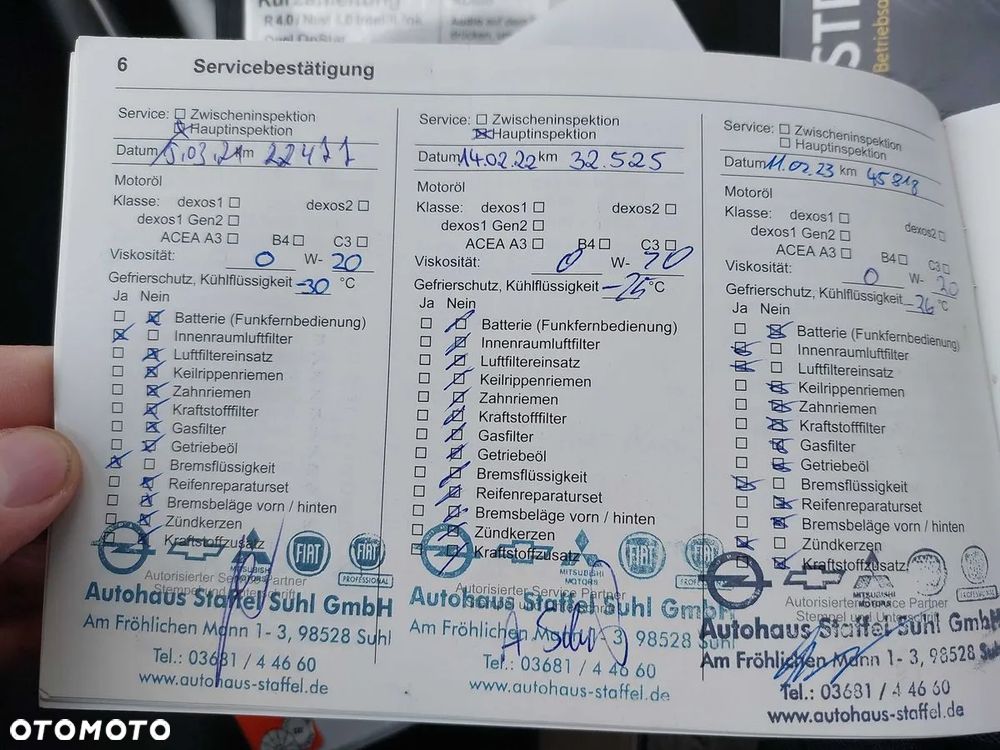 Kurzanleitung
R 4.0 / Navi 5.0 IntelliLink
STE
Betriebsa
6 Servicebestätigung
Service: Zwischeninspektion
Hauptinspektion
Datum 15.03.21 km 22477
Motoröl
Klasse: dexos1 dexos2
dexos1 Gen2
ACEA A3 B4 C3
Viskosität: 0 W- 20
Gefrierschutz, Kühlflüssigkeit -30 °C
Ja Nein
Batterie (Funkfernbedienung)
Innenraumluftfilter
Luftfiltereinsatz
Keilrippenriemen
Zahnriemen
Kraftstofffilter
Gasfilter
Getriebeöl
Bremsflüssigkeit
Reifenreparaturset
Bremsbeläge vorn / hinten
Zündkerzen
Kraftstoffzusatz
MITSUBISHI MOTORS
FIAT
FIAT
PROFESSIONAL
Autorisierter Service Partner
Stempel und Unterschrift
Autohaus Staffel Suhl GmbH
Am Fröhlichen Mann 1- 3, 98528 Suhl
Tel.: 03681 / 4 46 60
www.autohaus-staffel.de
Service: Zwischeninspektion
Hauptinspektion
Datum 14.02.22 km 32.525
Motoröl
Klasse: dexos1 dexos2
dexos1 Gen2
ACEA A3 B4 C3
Viskosität: 0 W-
Gefrierschutz, Kühlflüssigkeit °C
Ja Nein
Batterie (Funkfernbedienung)
Innenraumluftfilter
Luftfiltereinsatz
Keilrippenriemen
Zahnriemen
Kraftstofffilter
Gasfilter
Getriebeöl
Bremsflüssigkeit
Reifenreparaturset
Bremsbeläge vorn / hinten
Zündkerzen
Kraftstoffzusatz
MITSUBISHI
MOTORS
FIAT
FIAT
Autorisierter Service Partner
Autohaus Staffel Suhl GmbH
Am Fröhlichen Mann 1- 3, 98528 Suhl
Tel.: 03681 / 4 46 60
www.autohaus-staffel.de
Service: Zwischeninspektion
Hauptinspektion
Datum 11.02.23 km 45818
Motoröl
Klasse: dexos1 dexos2
dexos1 Gen2
ACEA A3 B4 C3
Viskosität: 0 W- 20
Gefrierschutz, Kühlflüssigkeit -26 °C
Ja Nein
Batterie (Funkfernbedienung)
Innenraumluftfilter
Luftfiltereinsatz
Keilrippenriemen
Zahnriemen
Kraftstofffilter
Gasfilter
Getriebeöl
Bremsflüssigkeit
Reifenreparaturset
Bremsbeläge vorn / hinten
Zündkerzen
Kraftstoffzusatz
MITSUBISHI
MOTORS
Autorisierter Service Partner
Stempel und Unterschrift
Autohaus Staffel Suhl GmbH
Am Fröhlichen Mann 1- 3, 98528 Suhl
Tel.: 03681 / 4 46 60
www.autohaus-staffel.de
OTOMOTO